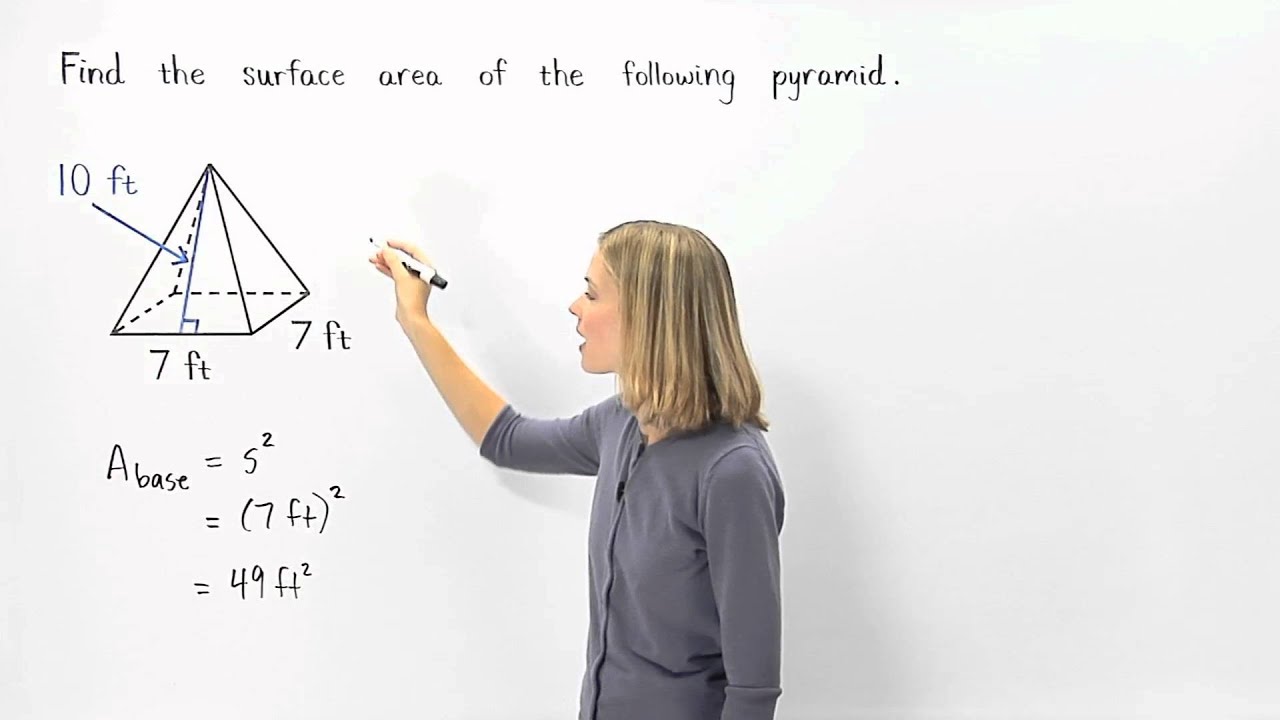 Find the surface area of the following pyramid.
10 ft
7 ft
7 ft
A base = s²
= (7 ft)²
= 49 ft²